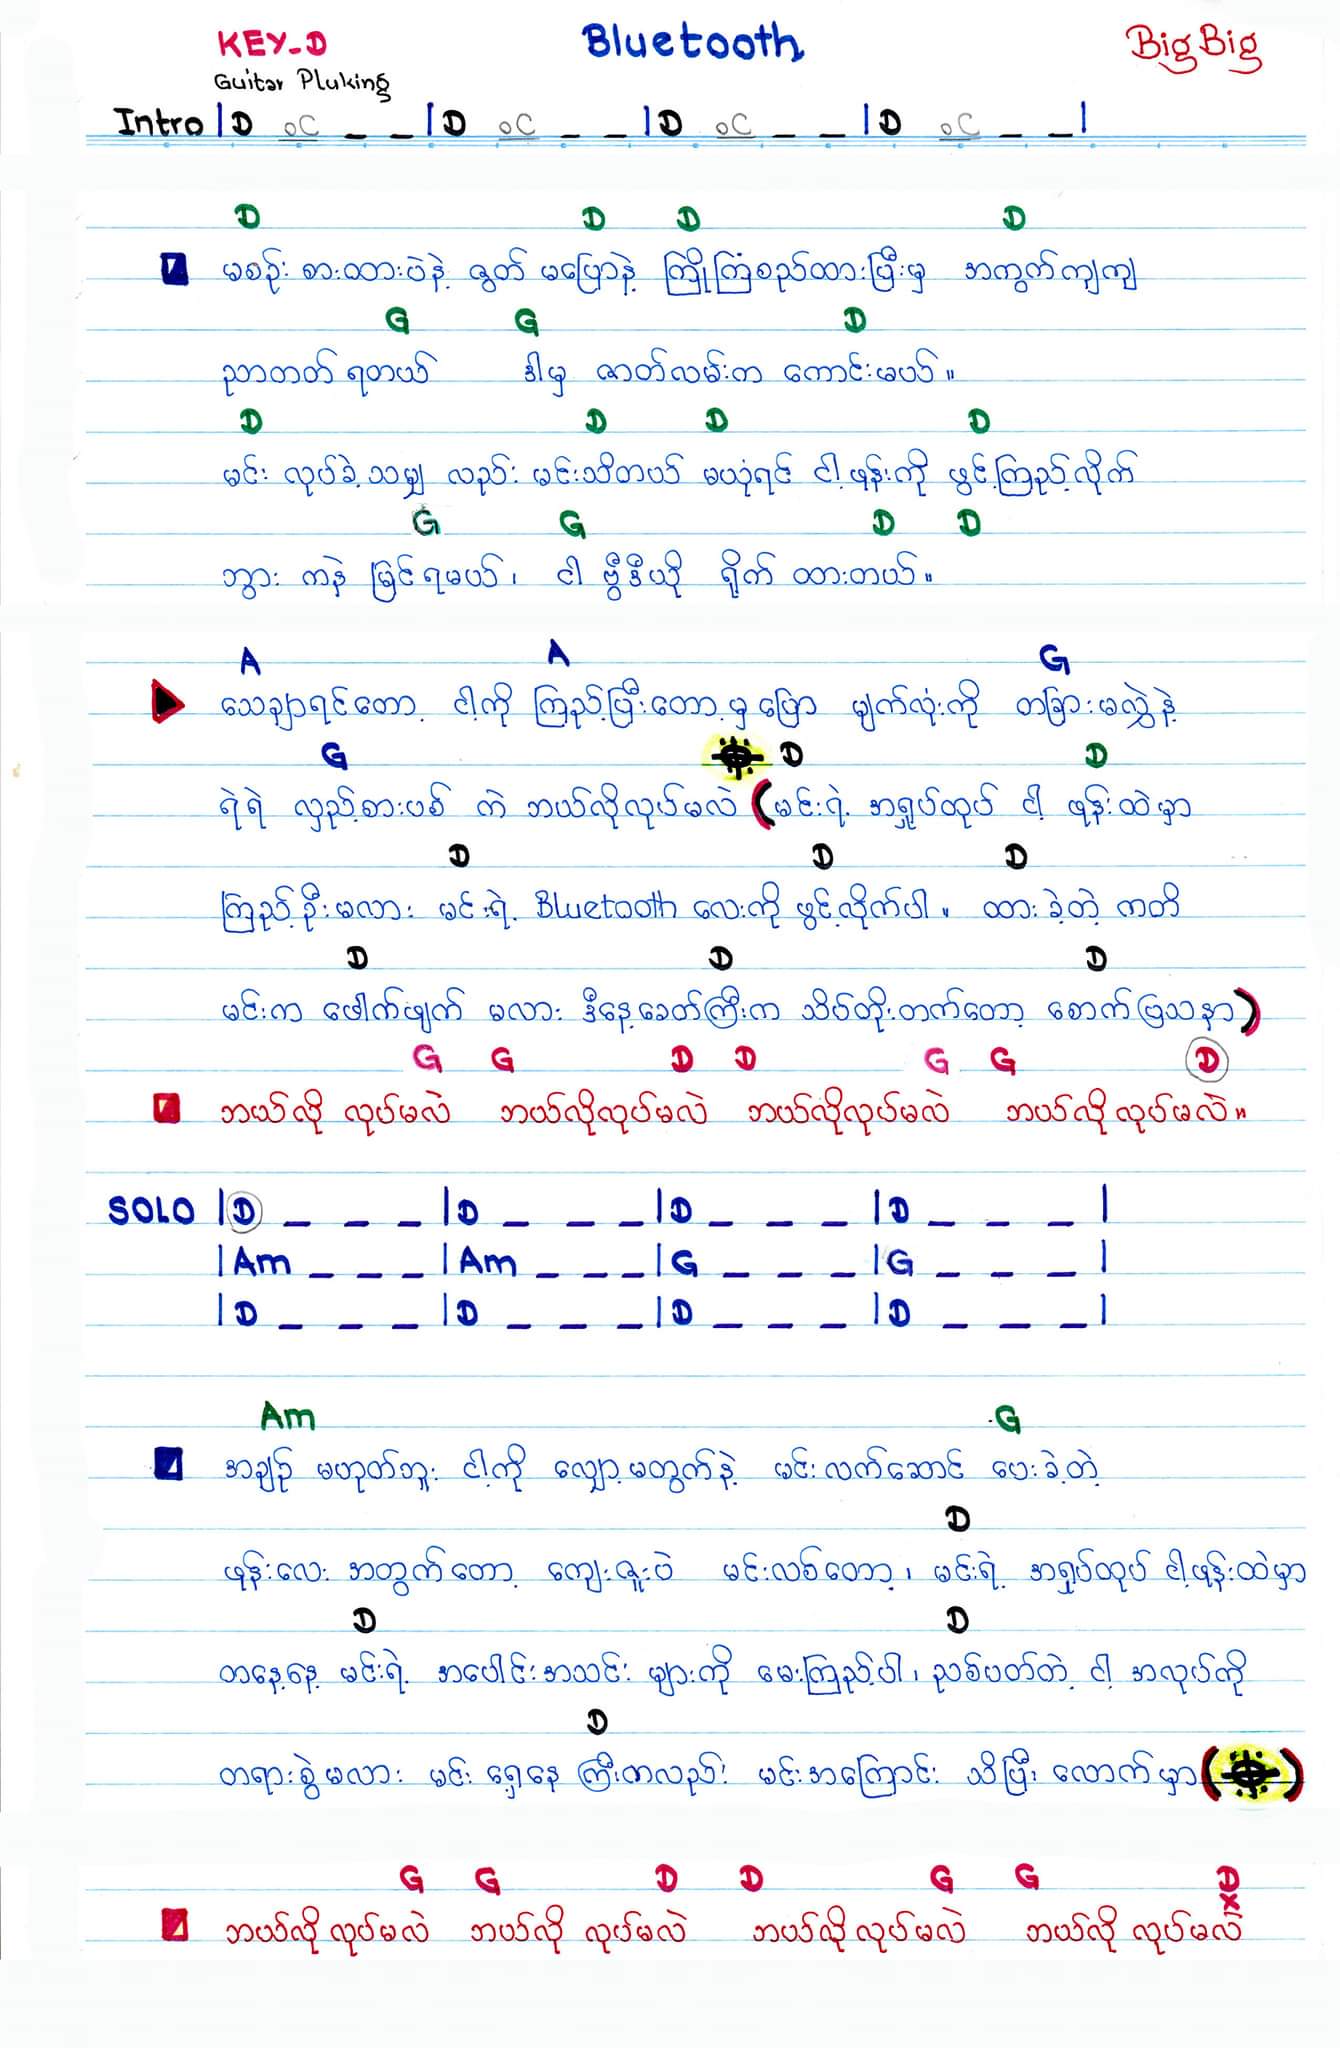 KEY-D Bluetooth BigBig
Guitar Pluking
Intro | D oC _ _ | D oC _ _ | D oC _ _ | D oC _ _ |
D D D D
မစဉ်း စားထားပဲနဲ့ ဇွတ် မပြောနဲ့ ကြိုကြံစည်ထားပြီးမှ အကွက်ကျကျ
G G D
ညာတတ် ရတယ် ဒါမှ ဇာတ်လမ်းက ကောင်းမယ်။
D D D D
မင်း လုပ်ခဲ့သမျှ လည်း မင်းသိတယ် မယုံရင် ငါ့ဖုန်းကို ဖွင့်ကြည့်လိုက်
G G D D
ဘွား ကနဲ မြင်ရမယ်၊ ငါ ဗွီဒီယို ရိုက် ထားတယ်။
A A G
သေချာရင်တော့ ငါ့ကို ကြည့်ပြီးတော့မှ ပြော မျက်လုံးကို တခြားမလွှဲနဲ့
G D D
ရဲရဲ လှည့်စားပစ် ကဲ ဘယ်လိုလုပ်မလဲ (မင်းရဲ့ အရှုပ်ထုပ် ငါ့ ဖုန်းထဲမှာ
D D D
ကြည့်ဦးမလား မင်းရဲ့ Bluetooth လေးကို ဖွင့်လိုက်ပါ။ ထားခဲ့တဲ့ ကတိ
D D D
မင်းက ဖေါက်ဖျက် မလား ဒီနေ့ခေတ်ကြီးက သိပ်တိုးတက်တော့ စောက်ပြသနာ)
G G D D G G D
ဘယ်လို လုပ်မလဲ ဘယ်လိုလုပ်မလဲ ဘယ်လိုလုပ်မလဲ ဘယ်လို လုပ်မလဲ။
SOLO | D _ _ _ | D _ _ _ | D _ _ _ | D _ _ _ |
| Am _ _ _ | Am _ _ _ | G _ _ _ | G _ _ _ |
| D _ _ _ | D _ _ _ | D _ _ _ | D _ _ _ |
Am G
အချဉ် မဟုတ်ဘူး ငါ့ကို လျှော့မတွက်နဲ့ မင်းလက်ဆောင် ပေးခဲ့တဲ့
D
ဖုန်းလေး အတွက်တော့ ကျေးဇူးပဲ မင်းလစ်တော့၊ မင်းရဲ့ အရှုပ်ထုပ် ငါ့ဖုန်းထဲမှာ
D D
တနေ့နေ့ မင်းရဲ့ အပေါင်းအသင်း များကို မေးကြည့်ပါ၊ ညစ်ပတ်တဲ့ ငါ့ အလုပ်ကို
D
တရားစွဲမလား မင်း ရှေ့နေ ကြီးကလည်း မင်းအကြောင်း သိပြီး လောက်မှာ ( )
G G D D G G D
x
ဘယ်လို လုပ်မလဲ ဘယ်လို လုပ်မလဲ ဘယ်လိုလုပ်မလဲ ဘယ်လို လုပ်မလဲ